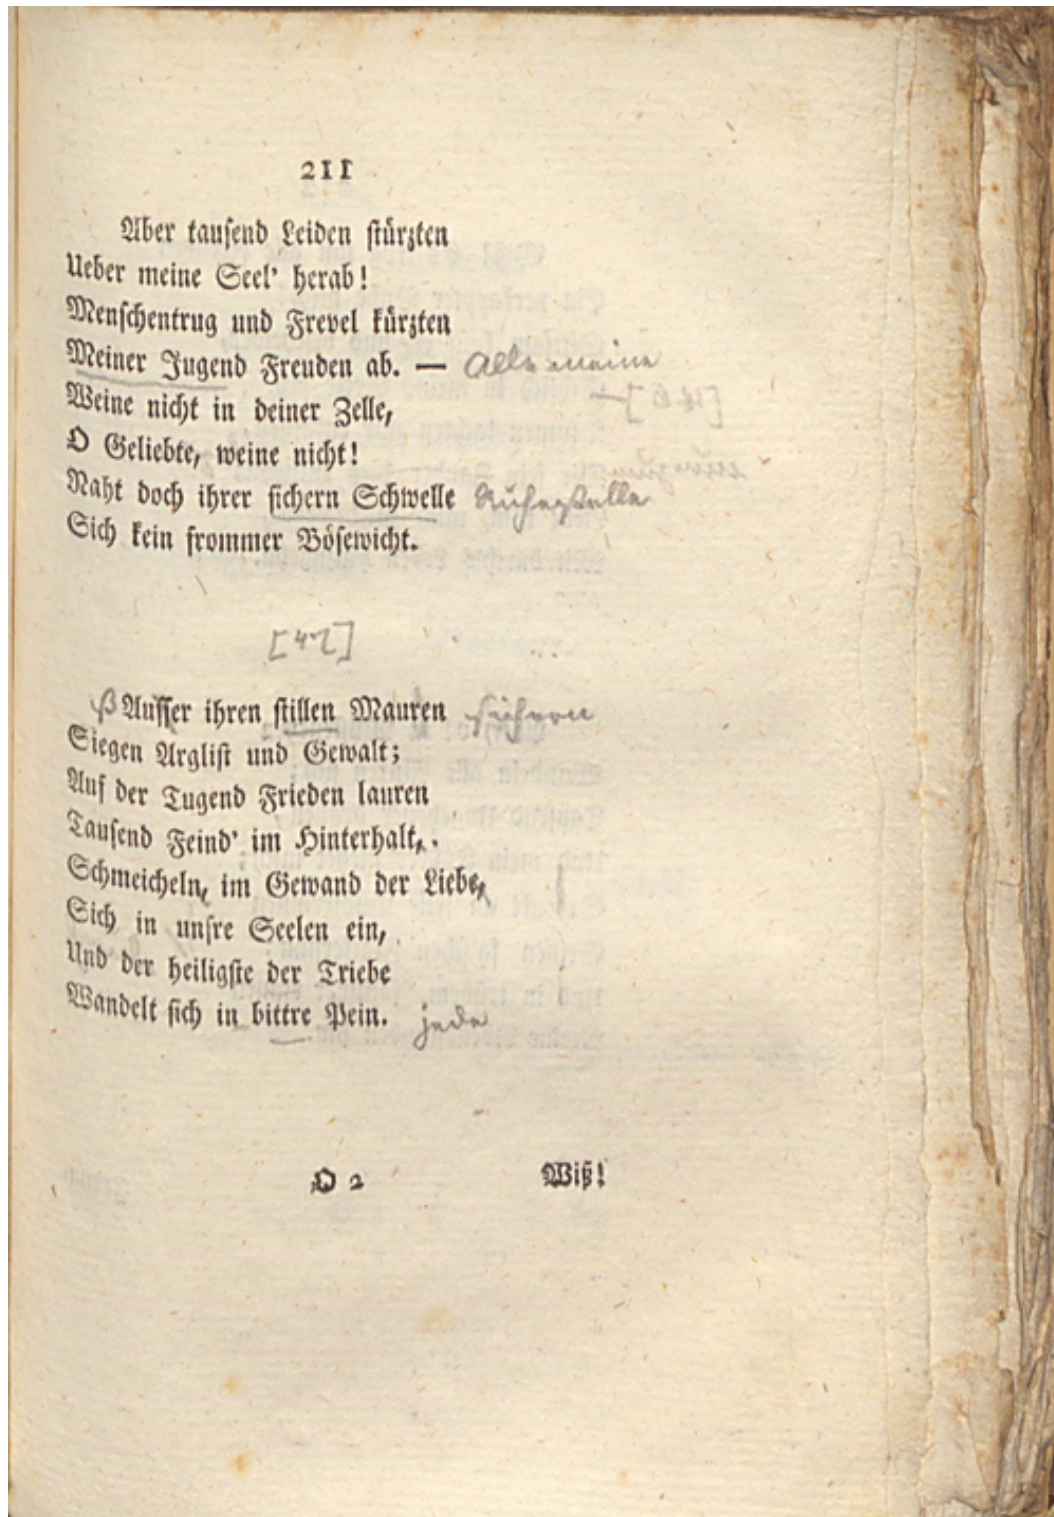 211
Aber tausend Leiden stürzten
Ueber meine Seel' herab!
Menschentrug und Frevel kürzten
Meiner Jugend Freuden ab. — Alle meine
Weine nicht in deiner Zelle,
O Geliebte, weine nicht!
Naht doch ihrer sichern Schwelle Ruhestelle
Sich kein frommer Bösewicht.
[47]
ß Ausser ihren stillen Mauren sichern
Siegen Arglist und Gewalt;
Auf der Tugend Frieden lauren
Tausend Feind' im Hinterhalt,
Schmeicheln, im Gewand der Liebe,
Sich in unsre Seelen ein,
Und der heiligste der Triebe
Wandelt sich in bittre Pein. jede
O 2 Wiß!